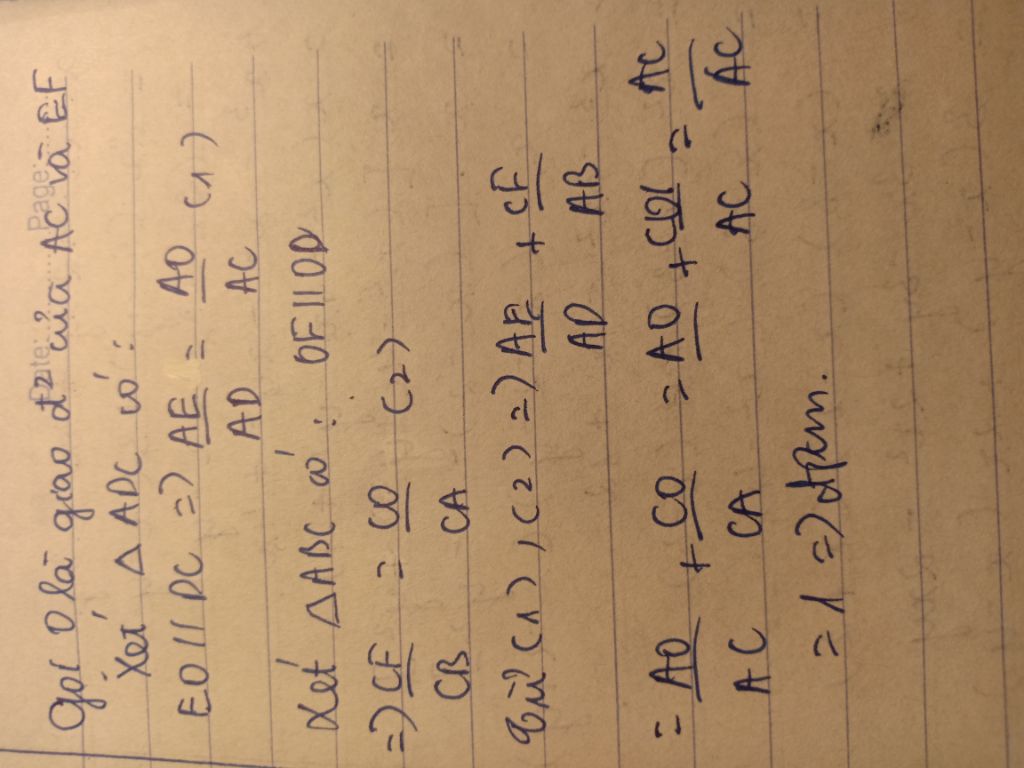 Date: Page:
Gọi O là giao đ² của AC và EF
Xét △ ADC có:
EO // DC => AE/AD = AO/AC (1)
Xét △ABC có: OF // OD
=> CF/CB = CO/CA (2)
Từ (1), (2) => AE/AD + CF/AB
= AO/AC + CO/CA = AO + COl/AC = AC/AC
= 1 => đpcm.